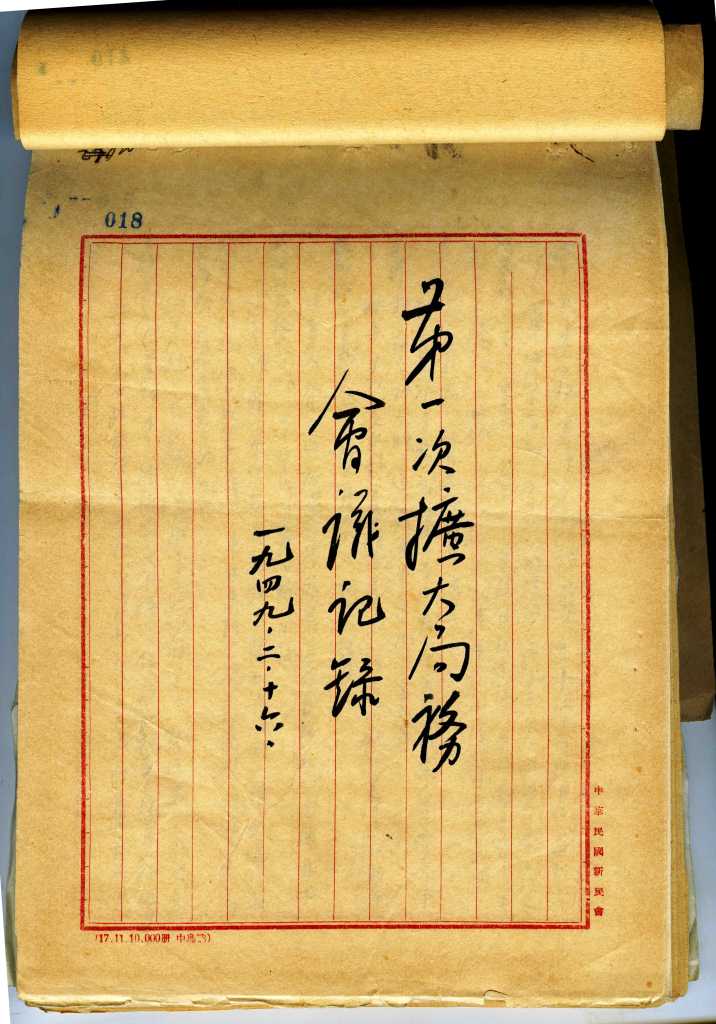 018
第一次擴大局務
會議記錄
一九四九·二·十六·
中華民國新民會
(17.11.10,000册